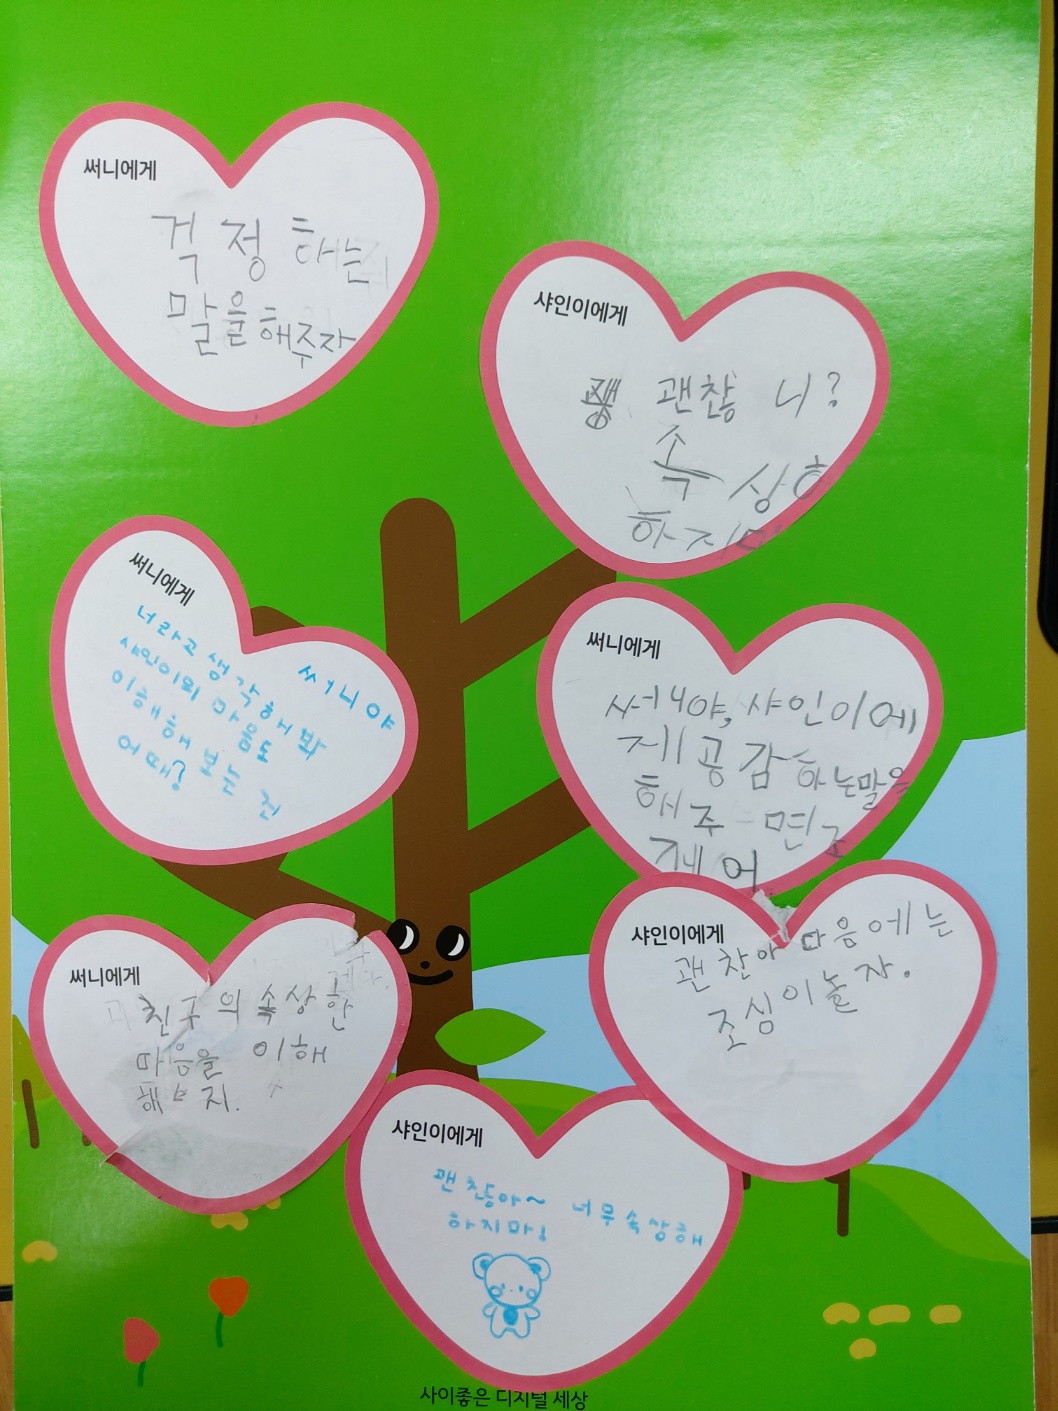 써니에게
걱정 해는
말을해주자
샤인이에게
괜찮 니?
속 상
하지마
써니에게
써니야
너라고 생각해봐
샤인이의 마음도
이해해 보는 건
어때?
써니에게
써니야, 샤인이에
게 공감하는말을
해주면 조
겠어
써니에게
친구의 속상한
마음을 이해
해보지.
샤인이에게
괜찬아 다음에는
조심이놀자.
샤인이에게
괜찮아~ 너무속상해
하지마!
사이좋은 디지털 세상